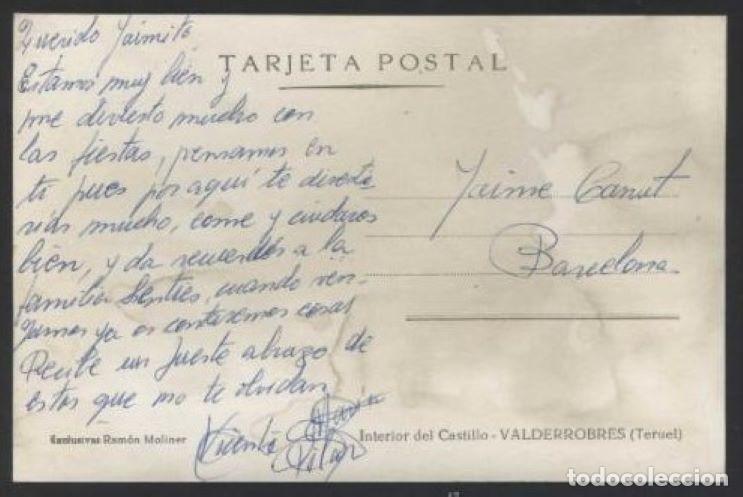 Querido Jaimito
TARJETA POSTAL
Estamos muy bien y
me divierto mucho con
las fiestas, pensamos en
ti pues por aquí te diverti
rias mucho, come y cuidaros
bien, y da recuerdos a la
familia cuando ven-
gamos ya os contaremos cosas
Recibe un fuerte abrazo de
estos que no te olvidan
Vicente
Pilar
Jaime Canut
Barcelona
Exclusivas Ramón Moliner
Interior del Castillo - VALDERROBRES (Teruel)
todocoleccion